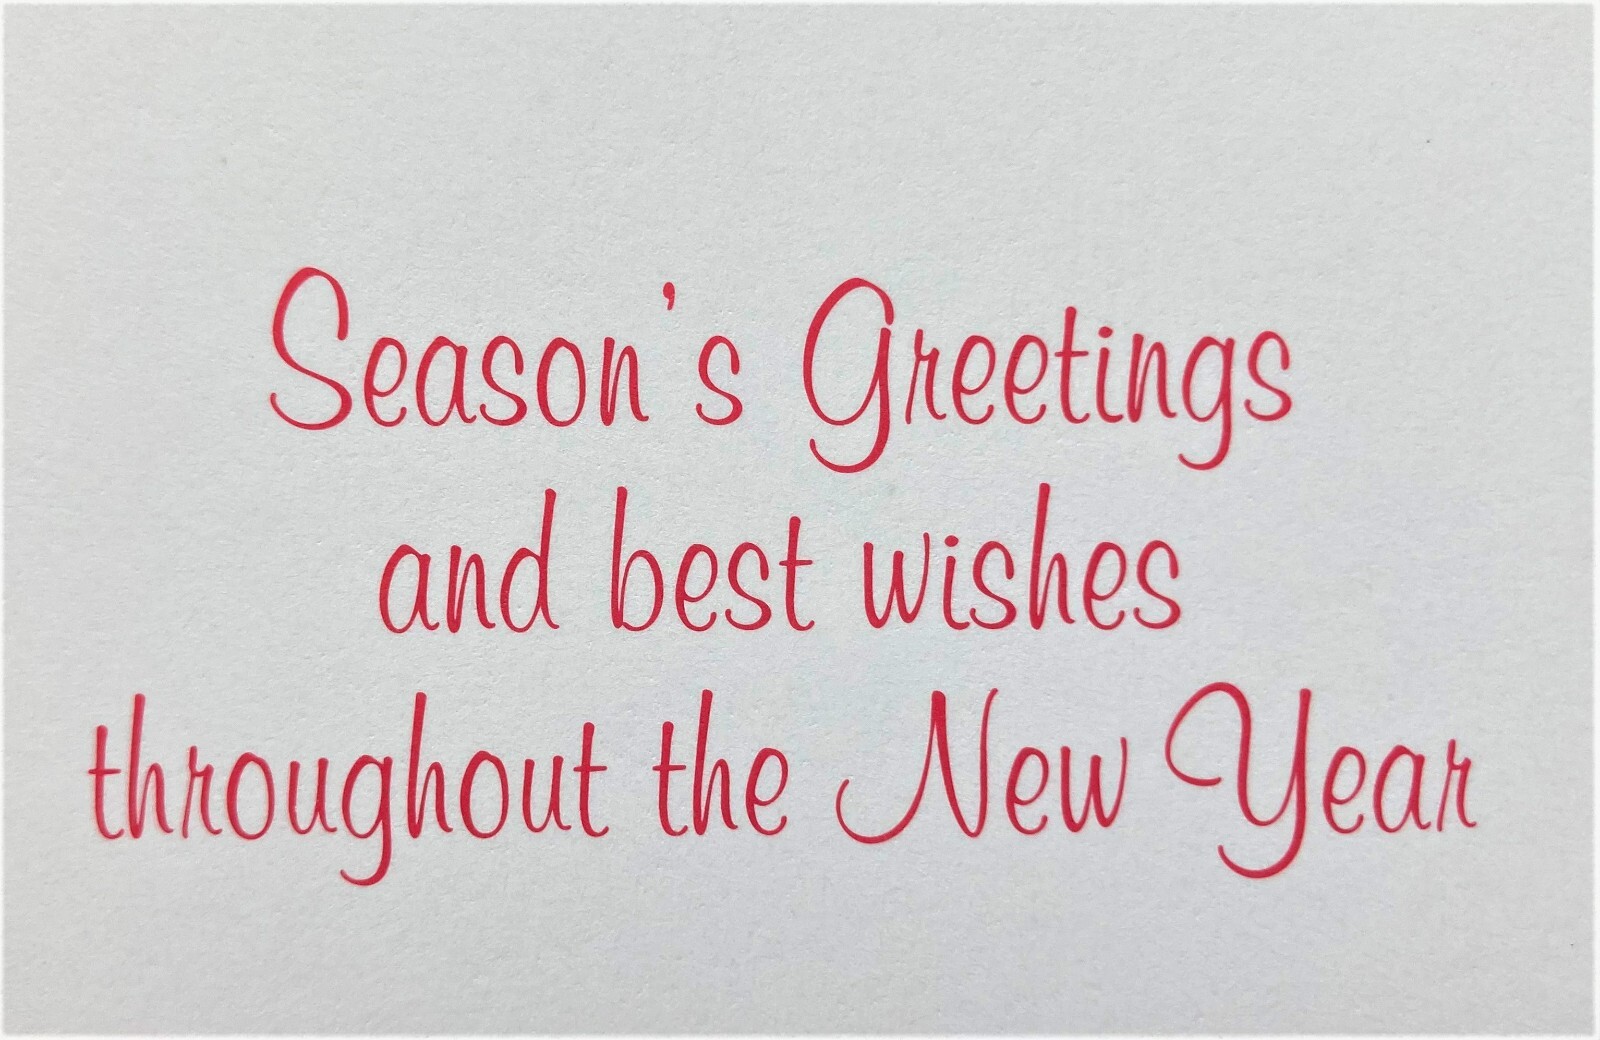 Season's Greetings
and best wishes
throughout the New Year